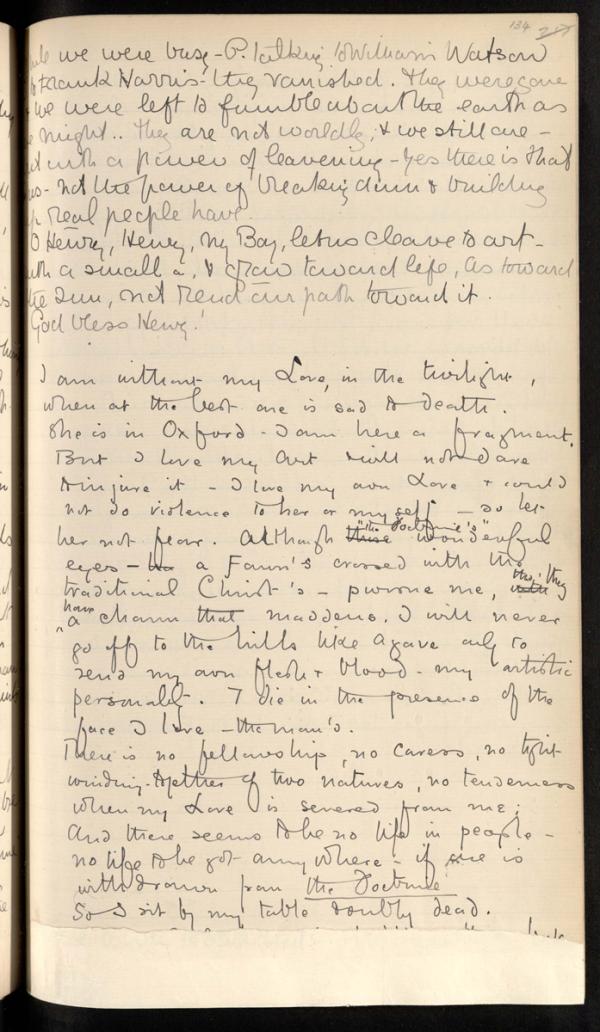 134 217
while we were busy - P. talking to William Watson
to Frank Harris - they vanished. They were gone
& we were left to fumble about the earth as
we might.. They are not worldly, & we still are -
with a power of leavening - yes there is that
- not the power of breaking down & building
up real people have.
O Henry, Henry, my Boy, let us cleave to art -
with a small a, & grow toward life, as toward
the sun, not rend our path toward it.
God bless Henry!
I am without my Love, in the twilight,
when at the best one is sad to death.
She is in Oxford - I am here a fragment.
But I love my art & will not dare
to injure it - I love my own Love & could
not do violence to her or myself - so let
her not fear. Although these "the Doctrine's" wonderful
eyes - a Faun's crossed with the
traditional Christ's - pursue me, tho' they
have a charm that maddens. I will never
go off to the hills like Agave only to
rend my own flesh & blood - my artistic
personality. I die in the presence of the
face I love - the man's.
There is no fellowship, no caress, no tight
winding-together of two natures, no tenderness
when my Love is severed from me;
And there seems to be no life in people -
no life to be got anywhere - if she is
withdrawn from the Doctrine
So I sit by my table doubly dead.